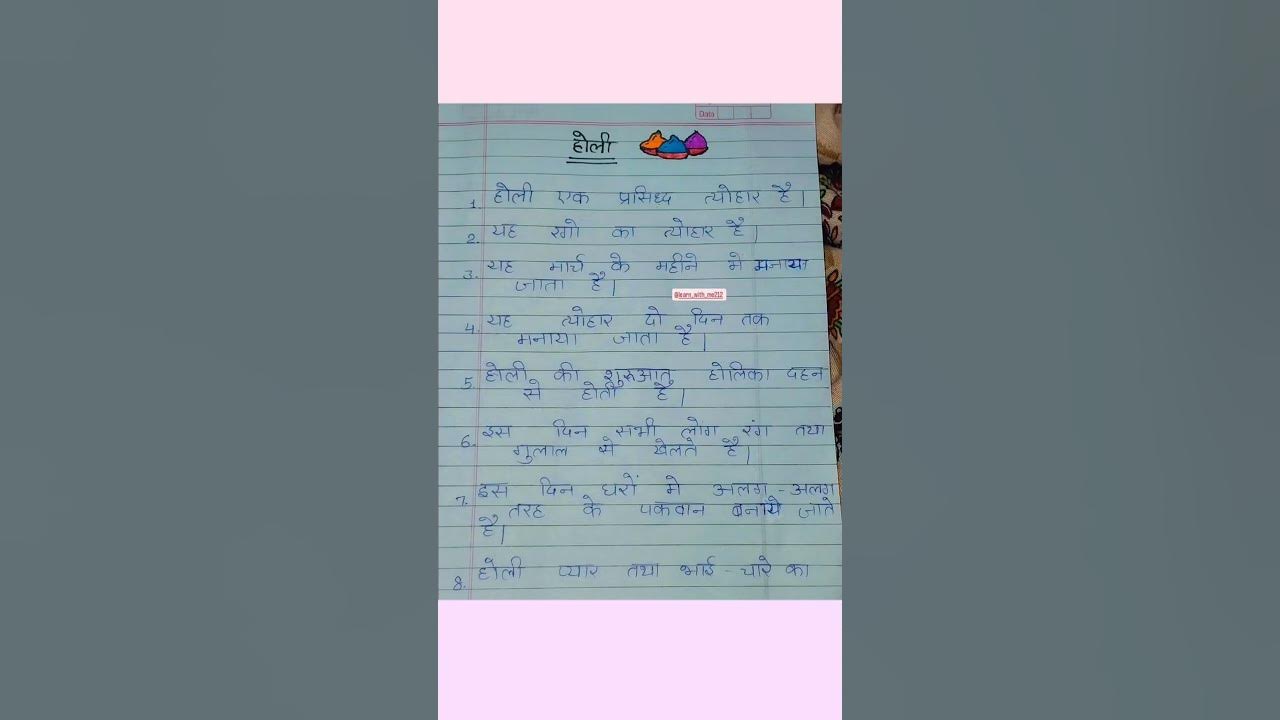 Data
होली
1. होली एक प्रसिध्द त्योहार है।
2. यह रंगो का त्योहार है।
3. यह मार्च के महीने मे मनाया
जाता है।
@learn_with_me212
4. यह त्योहार दो दिन तक
मनाया जाता है।
5. होली की शुरुआत होलिका दहन
से होती है।
6. इस दिन सभी लोग रंग तथा
गुलाल से खेलते है।
7. इस दिन घरों मे अलग-अलग
तरह के पकवान बनाये जाते
है।
8. होली प्यार तथा भाई-चारे का